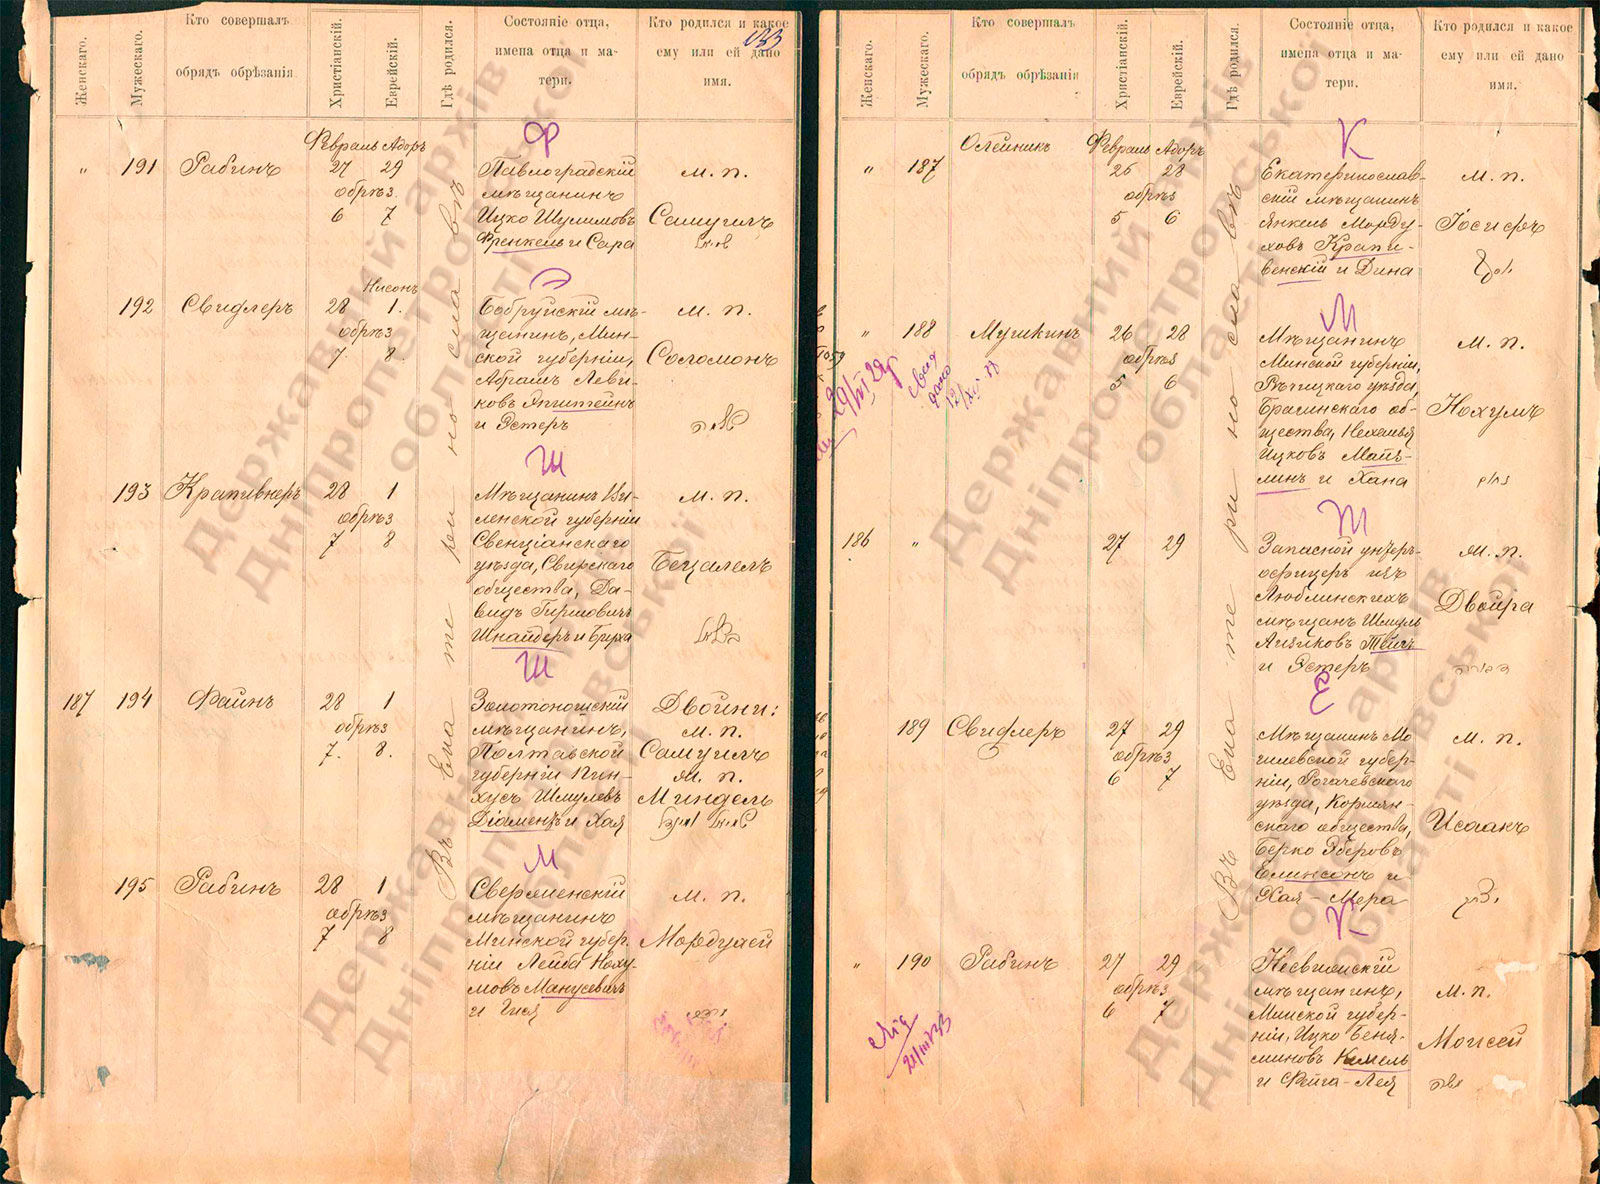 Женскаго.
Мужескаго.
Кто совершалъ
обрядъ обрѣзанія
Христіанскій.
Еврейскій.
Гдѣ родился.
Состояніе отца,
имена отца и ма-
тери.
Кто родился и какое
ему или ей дано
имя.
133
Въ Екатеринославѣ
Февраль Адоръ
Ф
" 191 Рабинъ 27 29
обрѣз
6 7
Павлоградскій
мѣщанинъ
Ицко Шулимовъ
Френкель и Сара
м. п.
Самуилъ
Нисонъ
192 Свидлеръ 28 1.
обрѣз
7. 8.
Бобруйскій мѣ-
щанинъ, Мин-
ской губерніи,
Абрамъ Леви-
ковъ Эпштейнъ
и Эстеръ
м. п.
Соломонъ
Ш
193 Крапивнеръ 28 1
обрѣз
7 8
Мѣщанинъ Ви-
ленской губерніи
Свенціанскаго
уѣзда, Свирскаго
общества, Да-
видъ Гиршовичъ
Шнайдеръ и Бриха
м. п.
Бецалелъ
Ш
187 194 Файнъ 28 1
обрѣз
7. 8.
Золотоношскій
мѣщанинъ,
Полтавской
губерніи Пин-
хусъ Шмулевъ
Діаментъ и Хая
Двойни:
м. п.
Самуилъ
ж. п.
Миндель
М
195 Рабинъ 28 1
обрѣз
7 8
мѣщанинъ
Минской губер-
ніи ЛейбаНоху-
мовъ Манусевичъ
и Гися
м. п.
Мордухей
Женскаго.
Мужескаго.
Кто совершалъ
обрядъ обрѣзанія
Христіанскій.
Еврейскій.
Гдѣ родился.
Состояніе отца,
имена отца и ма-
тери.
Кто родился и какое
ему или ей дано
имя.
Въ Екатеринославѣ
Февраль Адоръ
К
" 187 Олейникъ 26 28
обрѣз
5 6
Екатеринослав-
скій мѣщанинъ
Янкель Морду-
ховъ Крапи-
венскій и Дина
м. п.
Іосифъ
М
" 188 Мушкинъ 26 28
обрѣз
5 6
Мѣщанинъ
Минской губерніи,
Рѣчицкаго уѣзда,
Брагинскаго об-
щества, Нехемья
Ицковъ Майз-
линъ и Хана
м. п.
Нохумъ
Т
186 " 27 29
Запасной унтеръ-
офицеръ изъ
Люблинскихъ
мѣщанъ Шмуль
Айзиковъ Тейчъ
и Эстеръ
ж. п.
Двойра
Е
189 Свидлеръ 27 29
обрѣз
6 7
Мѣщанинъ Мо
гилевской губер-
ніи, Рогачевскаго
уѣзда, Кормян-
скаго общества,
Берко Эберовъ
Елинсонъ и
Хая-Мера
м. п.
Исаакъ
К
" 190 Рабинъ 27 29
обрѣз
6 7
Несвижскій
мѣщанинъ,
Минской губер-
ніи, Ицко Беня-
миновъ Кимель
и Фейга-Лея
м. п.
Моисей
Державний архів
Дніпропетровської
області